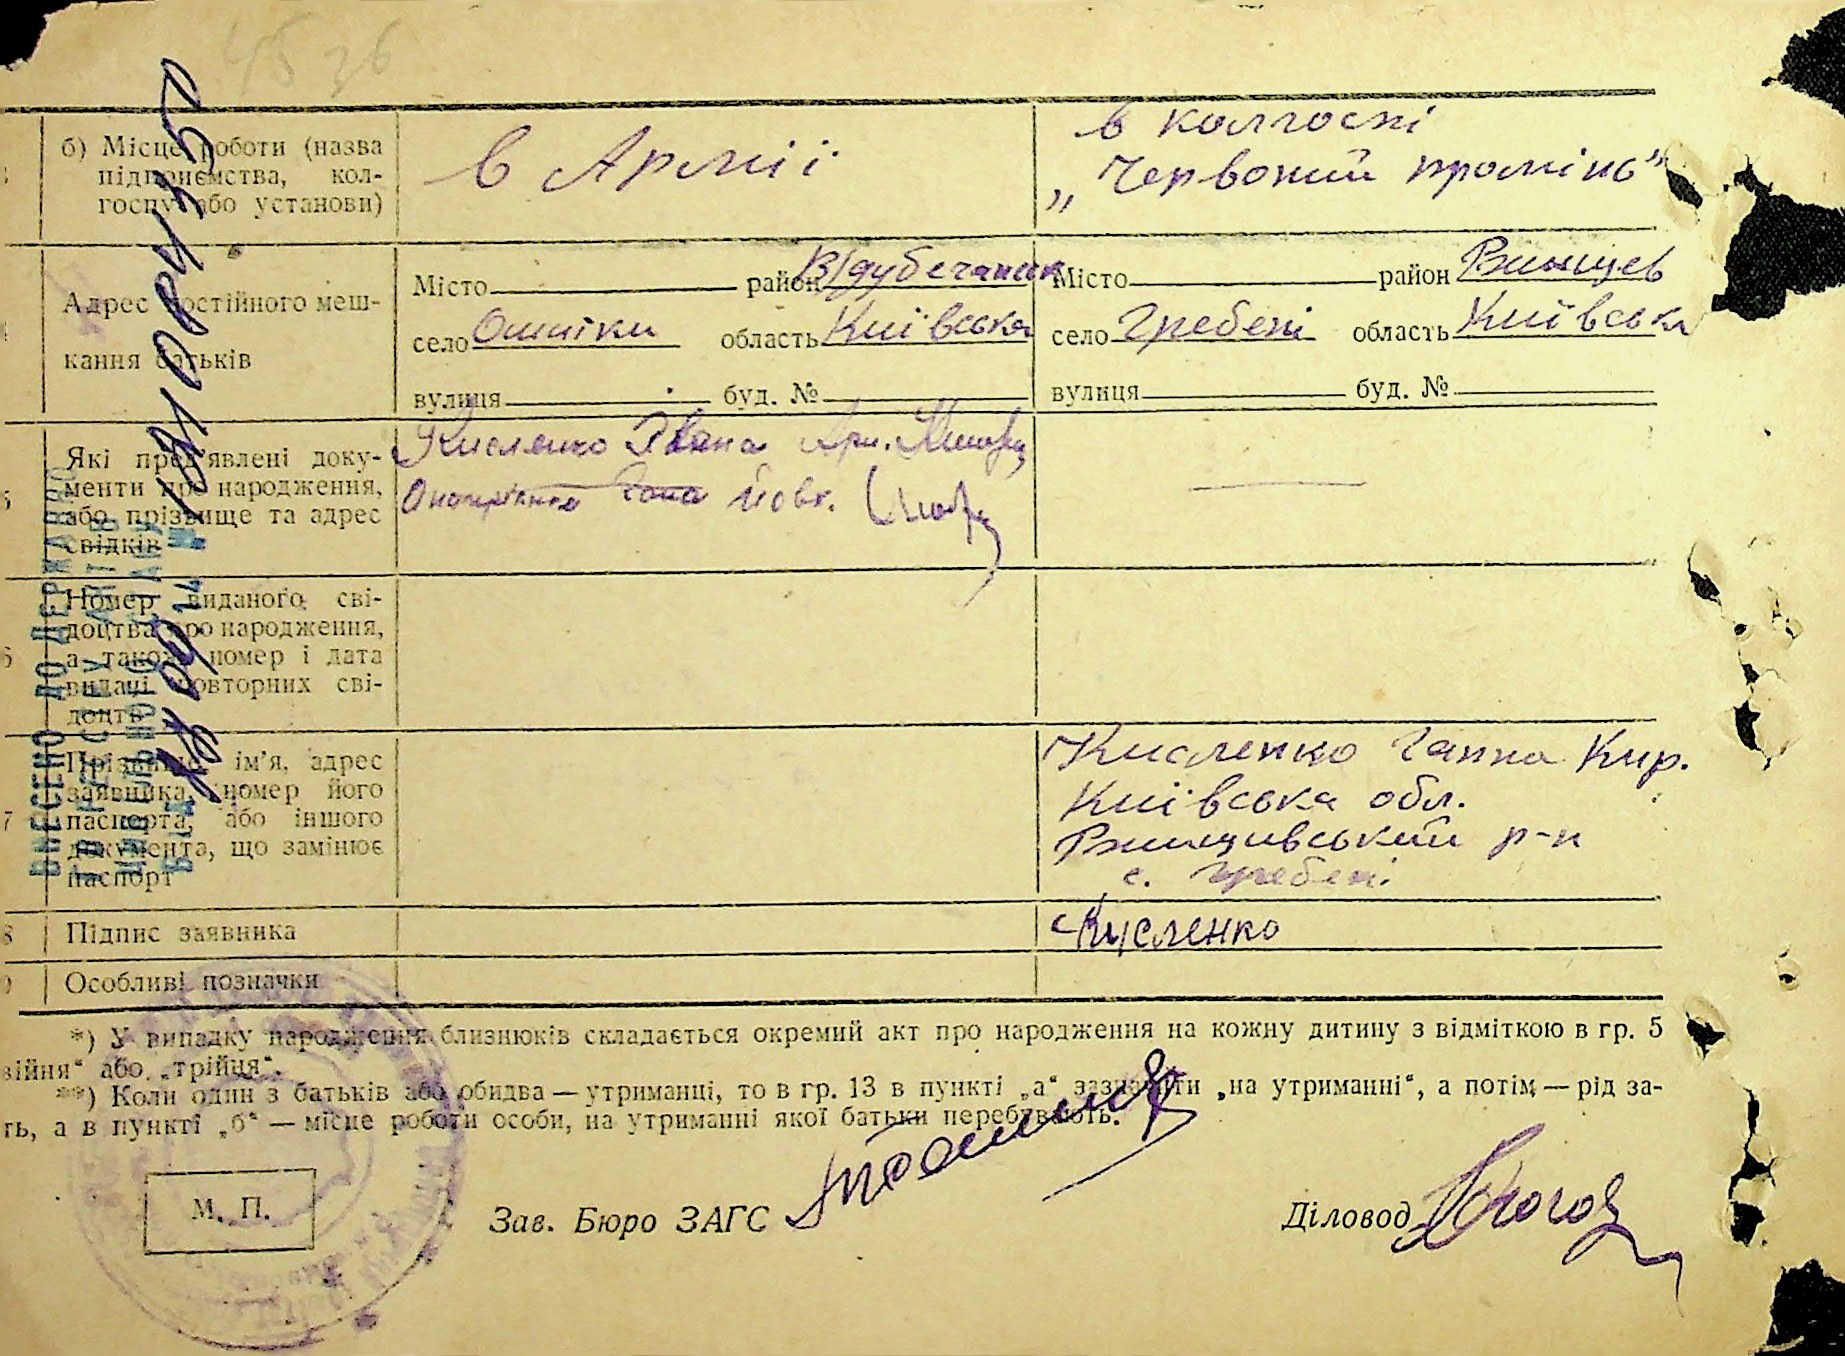 45 36
б) Місце роботи (назва
підприємства, кол-
госпу або установи)
в Армії
в колгоспі
„Червоний промінь"
Адрес постійного меш-
кання батьків
Місто район
село Ошитки область Київська
вулиця буд. №
Місто район Ржищев
село Гребені область Київська
вулиця буд. №
Які пред'явлені доку-
менти про народження,
або прізвище та адрес
свідків
Кисленко Івана
Номер виданого сві-
доцтва про народження,
а також номер і дата
видачі повторних сві-
доцтв
Прізвище, ім'я, адрес
заявника, номер його
паспорта, або іншого
документа, що замінює
паспорт
Кисленко Ганна Кир.
Київська обл.
Ржищивський р-н
с. Гребені
8 Підпис заявника
Кусленко
Особливі позначки
*) У випадку народження близнюків складається окремий акт про народження на кожну дитину з відміткою в гр. 5
війня" або „трійця".
**) Коли один з батьків або обидва — утриманці, то в гр. 13 в пункті „а" зазначити „на утриманні", а потім — рід за-
ть, а в пункті „б" — місце роботи особи, на утриманні якої батьки перебувають.
М. П.
Зав. Бюро ЗАГС
Діловод
ВНЕСЕНО ДО ДЕРЖАВНО
ГО РЕЄСТРУ АКТІВ
ЦИВІЛЬНОГО СТАНУ